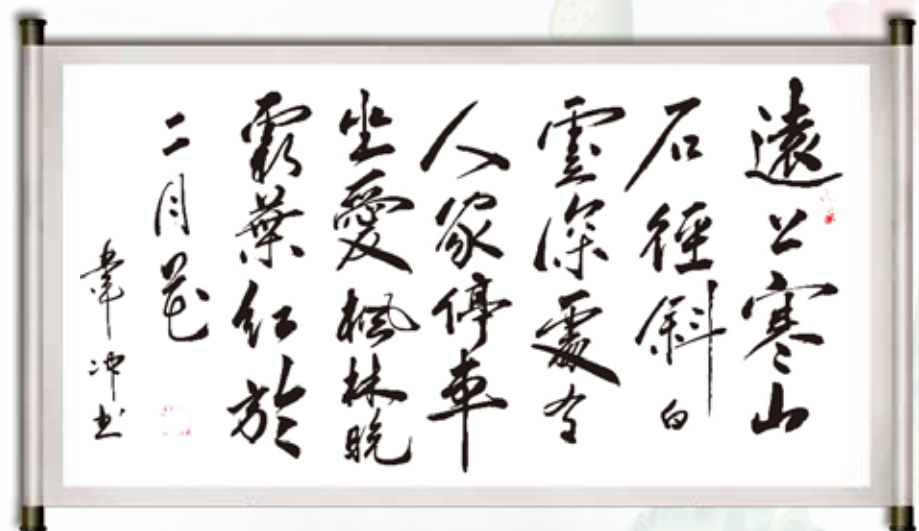 遠上寒山
石徑斜白
雲深處有
人家停車
坐愛楓林晚
霜葉紅於
二月花
韋冲书